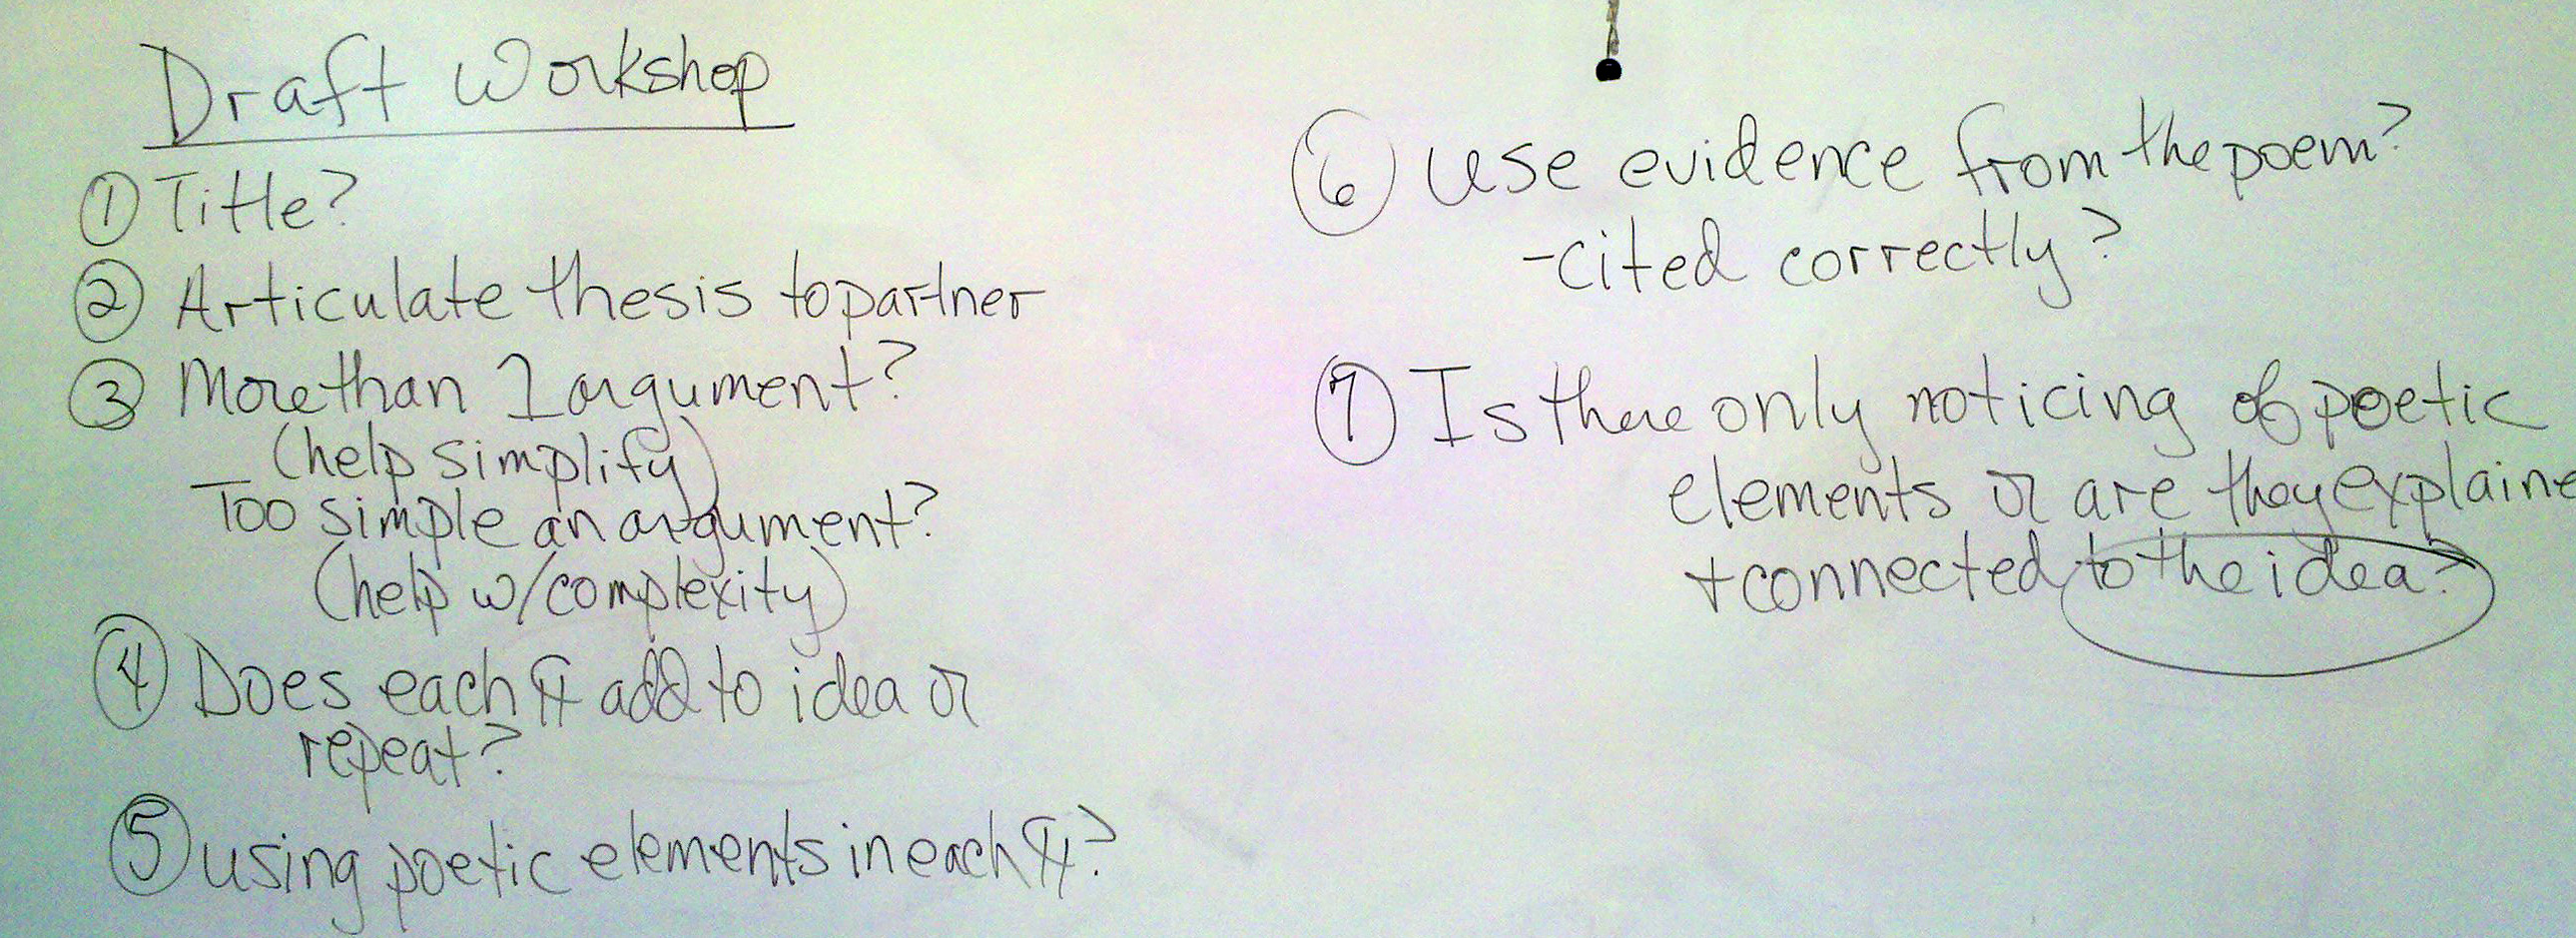 Draft Workshop
① Title?
② Articulate thesis to partner
③ More than 1 argument?
(help simplify)
Too simple an argument?
(help w/complexity)
④ Does each ¶ add to idea or
repeat?
⑤ using poetic elements in each ¶?
⑥ Use evidence from the poem?
-cited correctly?
⑦ Is there only noticing of poetic
elements or are they explaine
+connected to the idea?